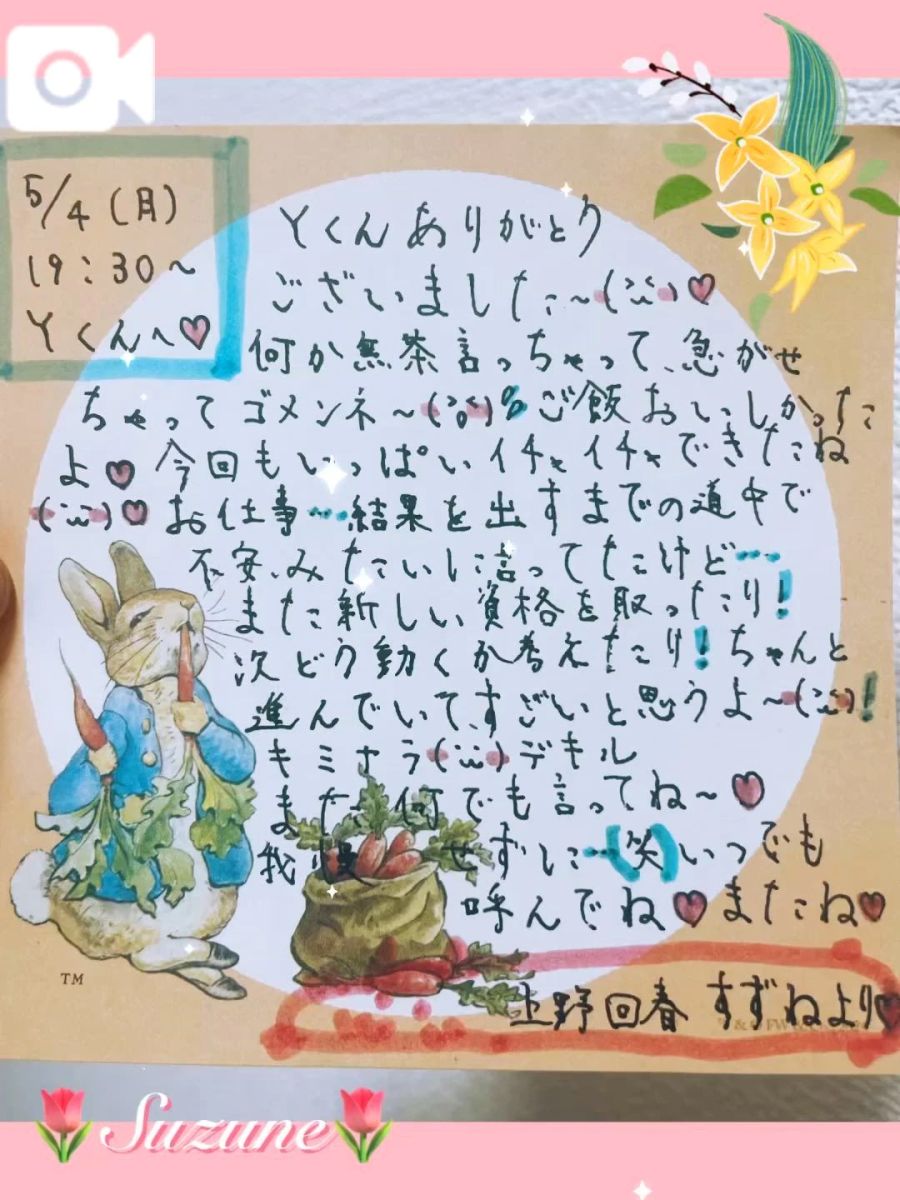 5/4(月)
19:30〜
Yくんへ♡
Yくんありがとう
ございました〜(¨̮)♡
何か無茶言っちゃって、急がせ
ちゃってゴメンネ〜 ご飯おいしかった
よ♡今回もいっぱいイチャイチャできたね
(¨̮)♡お仕事…結果を出すまでの道中で
不安、みたいに言ってたけど…
また新しい資格を取ったり!
次どう動くか考えたり!ちゃんと
進んでいて、すごいと思うよ〜(¨̮)!
キミナラ(¨̮)デキル
また何でも言ってね〜♡
我 せずに…(笑)いつでも
呼んでね♡またね♡
上野回春 すずねより♡
TM
Suzune